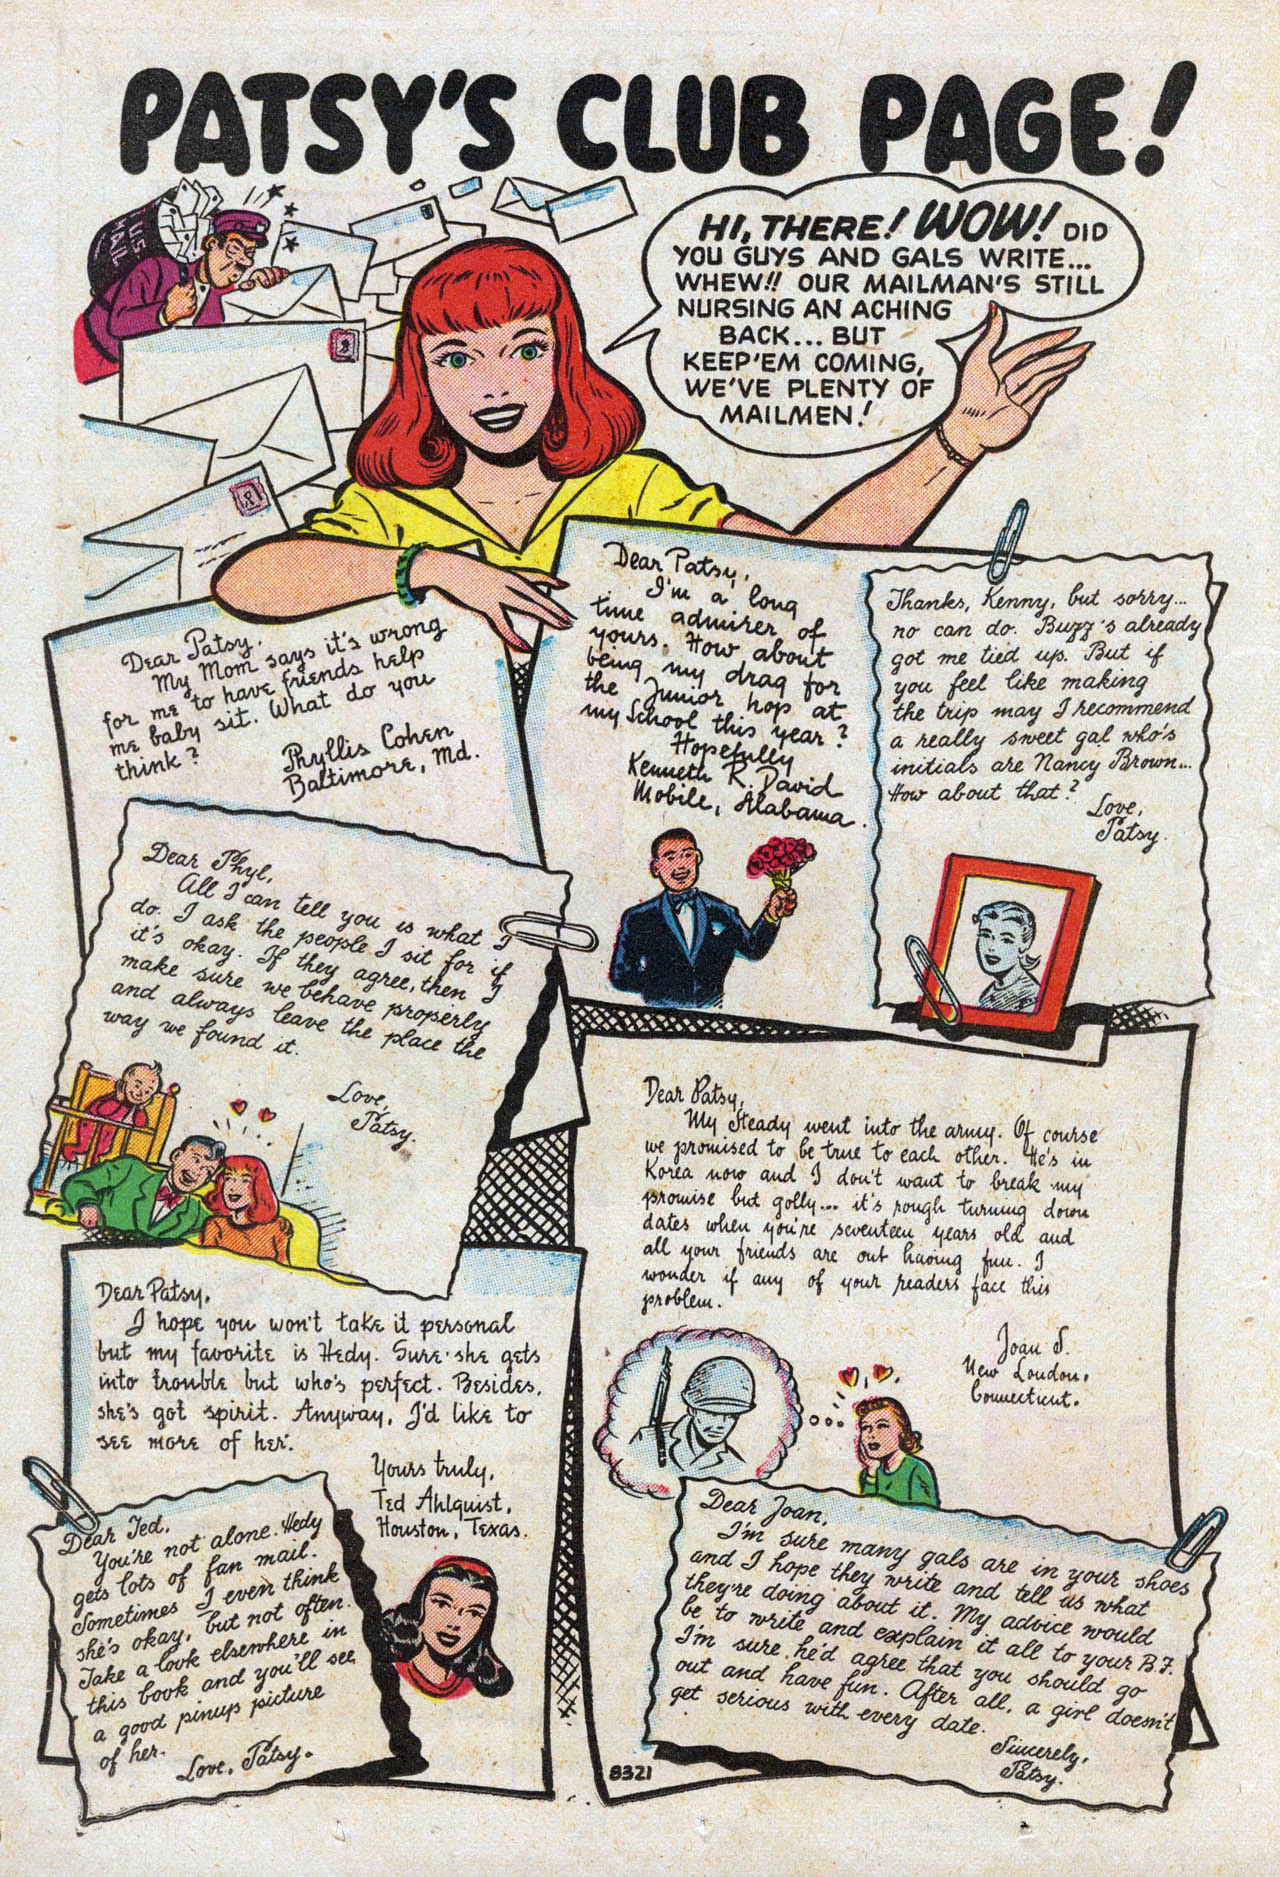 PATSY'S CLUB PAGE!
U.S. MAIL
HI, THERE! WOW! DID
YOU GUYS AND GALS WRITE...
WHEW!! OUR MAILMAN'S STILL
NURSING AN ACHING
BACK... BUT
KEEP 'EM COMING,
WE'VE PLENTY OF
MAILMEN!
Dear Patsy,
My Mom says it's wrong
for me to have friends help
me baby sit. What do you
think?
Phyllis Cohen
Baltimore, Md.
Dear Phyl,
All I can tell you is what I
do. I ask the people I sit for if
it's okay. If they agree, then I
make sure we behave properly
and always leave the place the
way we found it.
Love,
Patsy.
Dear Patsy,
I'm a long
time admirer of
yours. How about
being my drag for
the Junior hop at
my School this year?
Hopefully
Kenneth R. David
Mobile, Alabama.
Thanks, Kenny, but sorry...
no can do. Buzz's already
got me tied up. But if
you feel like making
the trip may I recommend
a really sweet gal who's
initials are Nancy Brown...
How about that?
Love,
Patsy.
Dear Patsy,
I hope you won't take it personal
but my favorite is Hedy. Sure she gets
into trouble but who's perfect. Besides,
she's got spirit. Anyway, I'd like to
see more of her.
Yours truly,
Ted Ahlquist,
Houston, Texas.
Dear Ted,
You're not alone. Hedy
gets lots of fan mail.
Sometimes I even think
she's okay, but not often.
Take a look elsewhere in
this book and you'll see
a good pinups picture
of her.
Love, Patsy.
Dear Patsy,
My Steady went into the army. Of course
we promised to be true to each other. He's in
Korea now and I don't want to break my
promise but golly... it's rough turning down
dates when you're seventeen years old and
all your friends are out having fun. I
wonder if any of your readers face this
problem.
Joan S.
New London,
Connecticut.
Dear Joan,
I'm sure many gals are in your shoes
and I hope they write and tell us what
they're doing about it. My advice would
be to write and explain it all to your B.F.
I'm sure he'd agree that you should go
out and have fun. After all, a girl doesn't
get serious with every date.
Sincerely,
Patsy.
8321